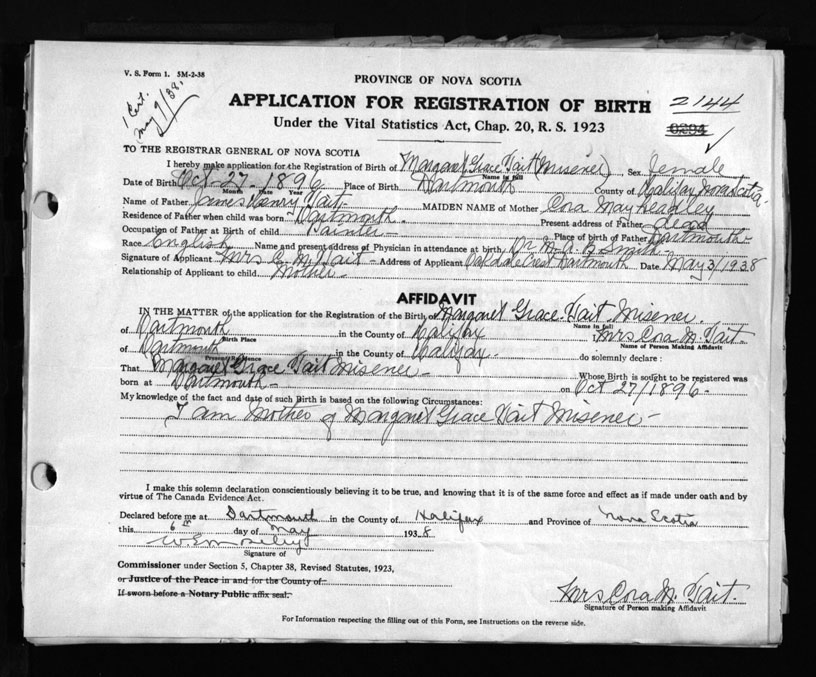 V. S. Form 1. 5M-2-38
1 Cert.
May 9/38.
PROVINCE OF NOVA SCOTIA
APPLICATION FOR REGISTRATION OF BIRTH
2144
Under the Vital Statistics Act, Chap. 20, R. S. 1923
TO THE REGISTRAR GENERAL OF NOVA SCOTIA
I hereby make application for the Registration of Birth of Margaret Grace Tait (Misener) Sex female
Name in full
Date of Birth Oct-27-1896 Place of Birth Dartmouth County of Halifax Nova Scotia
Month Date Year
Name of Father James Henry Tait MAIDEN NAME of Mother Cora May Headley
Residence of Father when child was born Dartmouth Present address of Father dead
Occupation of Father at Birth of child Painter Place of birth of Father Dartmouth
Race English Name and present address of Physician in attendance at birth Dr M. A. B. Smith
Signature of Applicant Mrs C. M. Tait Address of Applicant Oakdale Crest Dartmouth Date May 3/1938
Relationship of Applicant to child Mother
AFFIDAVIT
IN THE MATTER of the application for the Registration of the Birth of Margaret Grace Tait Misener.
Name in full
of Dartmouth in the County of Halifax Mrs Cora M. Tait
Birth Place Name of Person Making Affidavit
of Dartmouth in the County of Halifax do solemnly declare :
Present Residence
That Margaret Grace Tait Misener Whose Birth is sought to be registered was
born at Dartmouth on Oct 27/1896
My knowledge of the fact and date of such Birth is based on the following Circumstances:
I am Mother of Margaret Grace Tait Misener
I make this solemn declaration conscientiously believing it to be true, and knowing that it is of the same force and effect as if made under oath and by
virtue of The Canada Evidence Act.
Declared before me at Dartmouth in the County of Halifax and Province of Nova Scotia
this 6th day of May 1938
Signature of
Commissioner under Section 5, Chapter 38, Revised Statutes, 1923,
or Justice of the Peace in and for the County of
If sworn before a Notary Public affix seal.
Mrs Cora M. Tait.
Signature of Person making Affidavit
For Information respecting the filling out of this Form, see Instructions on the reverse side.